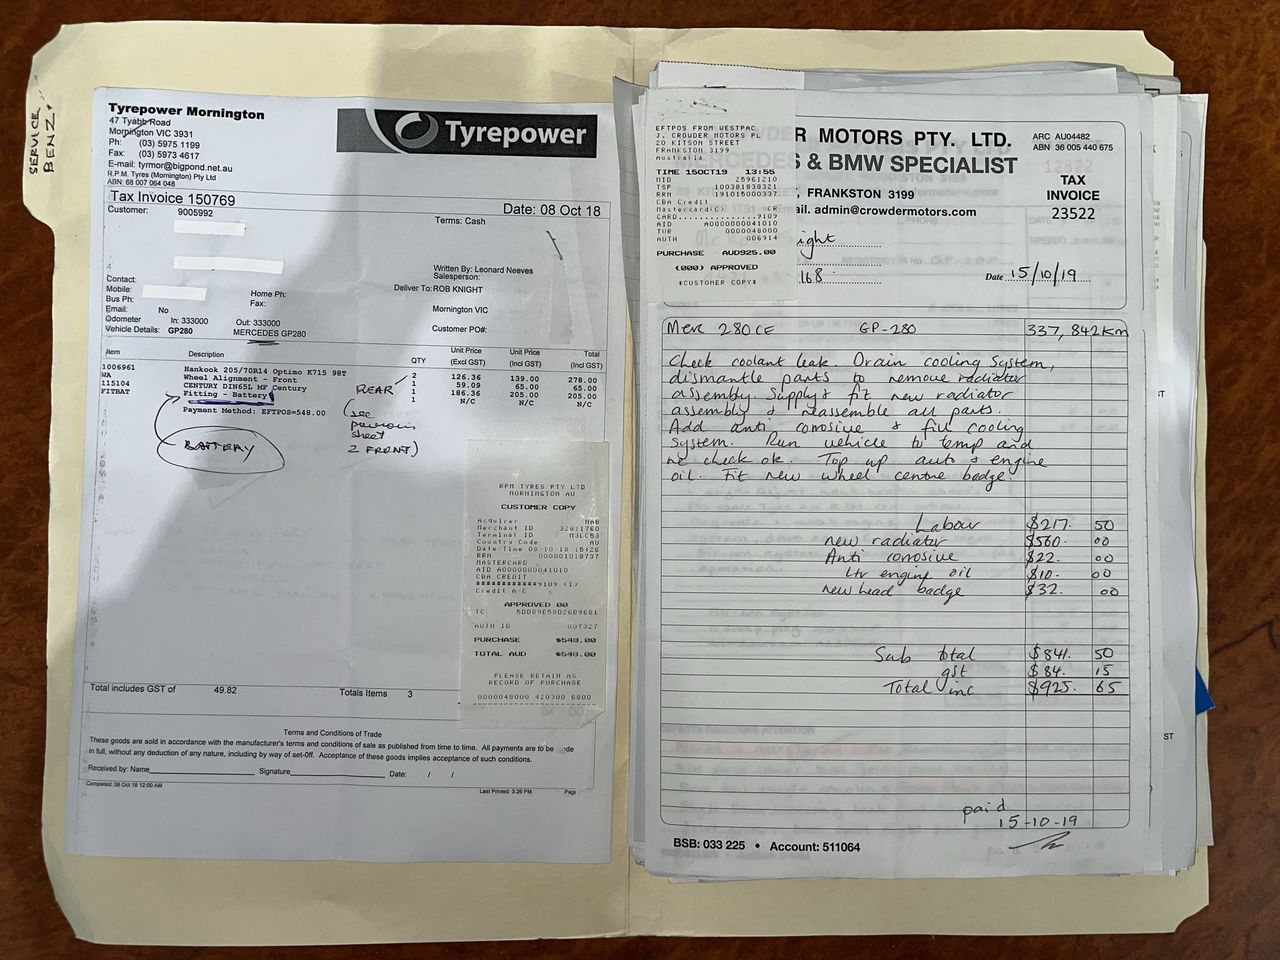 SERVICE
BENZ.
Tyrepower Mornington
47 Tyabb Road
Mornington VIC 3931
Ph: (03) 5975 1199
Fax: (03) 5973 4617
E-mail: tyrmor@bigpond.net.au
R.P.M. Tyres (Mornington) Pty Ltd
ABN: 68 007 064 048
Tyrepower
Tax Invoice 150769
Date: 08 Oct 18
Customer: 9005992
Terms: Cash
Written By: Leonard Neeves
Salesperson:
Contact:
Mobile:
Bus Ph:
Email: No
Home Ph:
Fax:
Deliver To: ROB KNIGHT
Mornington VIC
Odometer In: 333000 Out: 333000
Vehicle Details: GP280 MERCEDES GP280
Customer PO#:
Item Description QTY Unit Price (Excl GST) Unit Price (Incl GST) Total (Incl GST)
1006961 Hankook 205/70R14 Optimo K715 98T 2 126.36 139.00 278.00
WA Wheel Alignment - Front 1 59.09 65.00 65.00
115104 CENTURY DIN65L MF Century 1 186.36 205.00 205.00
FITBAT Fitting - Battery 1 N/C N/C N/C
Payment Method: EFTPOS=548.00
REAR
(see
previous
sheet
2 FRONT)
BATTERY
RPM TYRES PTY LTD
MORNINGTON AU
CUSTOMER COPY
Acquirer NAB
Merchant ID
Terminal ID
Country Code AU
Date/Time
RRN 000001018737
MASTERCARD
AID A0000000041010
CBA CREDIT
9109 (I)
Credit A/C
APPROVED 00
TC
AUTH ID 007327
PURCHASE $548.00
TOTAL AUD $548.00
PLEASE RETAIN AS
RECORD OF PURCHASE
0000048000 420300 6800
Total includes GST of 49.82
Totals Items 3
Terms and Conditions of Trade
These goods are sold in accordance with the manufacturer's terms and conditions of sale as published from time to time. All payments are to be
in full, without any deduction of any nature, including by way of set-Off. Acceptance of these goods implies acceptance of such conditions.
Received by: Name Signature Date: / /
Completed: 08 Oct 18 12:00 AM
Last Printed: 3:26 PM
EFTPOS FROM WESTPAC
J. CROWDER MOTORS PL
20 KITSON STREET
FRANKSTON 3199
Australia
TIME 15OCT19 13:55
MID 25961210
TSP 100381838321
RRN 191015000337
CBA Credit
Mastercard(C) CR
CARD 9109
AID A0000000041010
TVR 0000048000
AUTH 006914
PURCHASE AUD925.00
(000) APPROVED
*CUSTOMER COPY*
R MOTORS PTY. LTD.
& BMW SPECIALIST
, FRANKSTON 3199
ail. admin@crowdermotors.com
ARC AU04482
ABN 36 005 440 675
TAX
INVOICE
23522
ight
168
Date 15/10/19
Merc 280CE GP-280 337,842km
Check coolant leak Drain cooling system,
dismantle parts to remove radiator
assembly. Supply & fit new radiator
assembly & reassemble all parts.
Add anti corrosive & fill cooling
system. Run vehicle to temp and
re check ok. Top up auto & engine
oil. Fit new wheel centre badge.
Labour $217. 50
new radiator $560. 00
Anti corrosive $22. 00
Ltr engine oil $10. 00
new head badge $32. 00
Sub total $841. 50
gst $84. 15
Total inc $925. 65
paid
15-10-19
BSB: 033 225 • Account: 511064
ST
ST